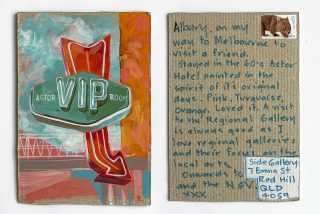 ASTOR VIP ROOM
Albury, on my
way to Melbourne to
visit a friend.
Stayed in the 60's Astor
Hotel painted in the
spirit of it's original
days. Pink, Turquoise,
Orange. Loved it. A visit
to the Regional Gallery
is always good as I
love regional galleries
and their focus on the
local arts.
Onwards to
and the NGV.
xxx
Side Gallery
7 Emma St
Red Hill
QLD
4059